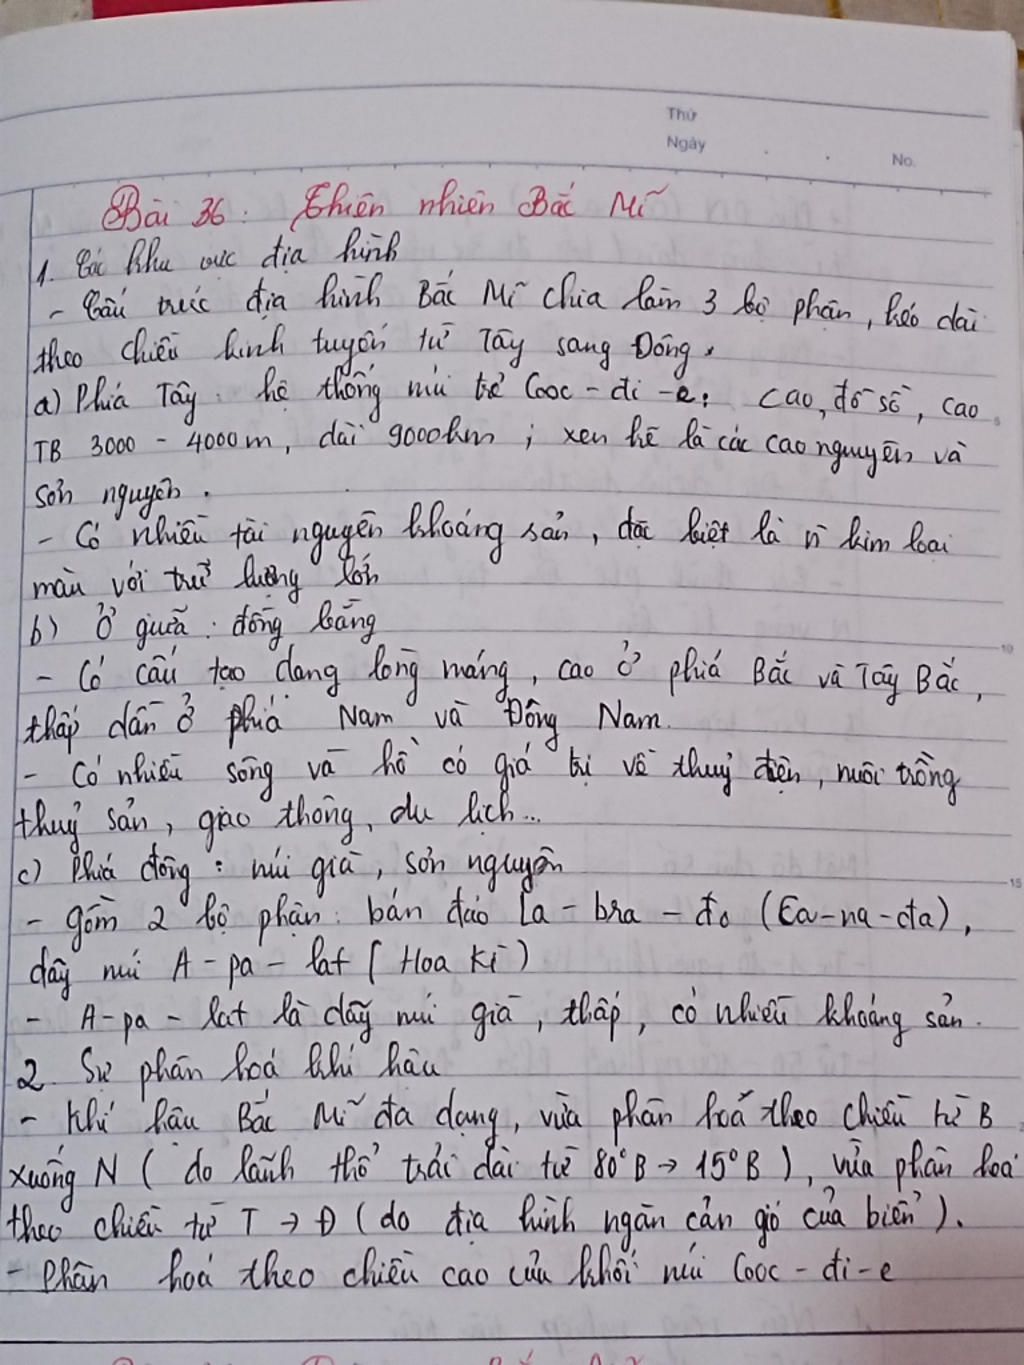 Thứ
Ngày
No.
Bài 36: Thiên nhiên Bắc Mĩ
1. Các khu vực địa hình
- Cấu trúc địa hình Bắc Mĩ chia làm 3 bộ phận, kéo dài
theo chiều kinh tuyến từ Tây sang Đông.
a) Phía Tây: hệ thống núi trẻ Cooc-đi-e: cao, đồ sộ, cao
TB 3000 - 4000m, dài 9000km; xen kẽ là các cao nguyên và
sơn nguyên.
- Có nhiều tài nguyên khoáng sản, đặc biệt là kim loại
màu với trữ lượng lớn
b) Ở giữa: đồng bằng
- Có cấu tạo dạng lòng máng, cao ở phía Bắc và Tây Bắc,
thấp dần ở phía Nam và Đông Nam.
- Có nhiều sông và hồ có giá trị về thuỷ điện, nuôi trồng
thuỷ sản, giao thông, du lịch...
c) Phía đông: núi già, sơn nguyên
- gồm 2 bộ phận: bán đảo La-bra-đo (Ca-na-đa),
dãy núi A-pa-lat (Hoa Kì)
- A-pa-lat là dãy núi già, thấp, có nhiều khoáng sản.
2. Sự phân hoá khí hậu
- Khí hậu Bắc Mĩ đa dạng, vừa phân hoá theo chiều từ B
xuống N (do lãnh thổ trải dài từ 80°B → 15°B), vừa phân hoá
theo chiều từ T → Đ (do địa hình ngăn cản gió của biển).
- Phân hoá theo chiều cao của khối núi Cooc-đi-e
5
10
15